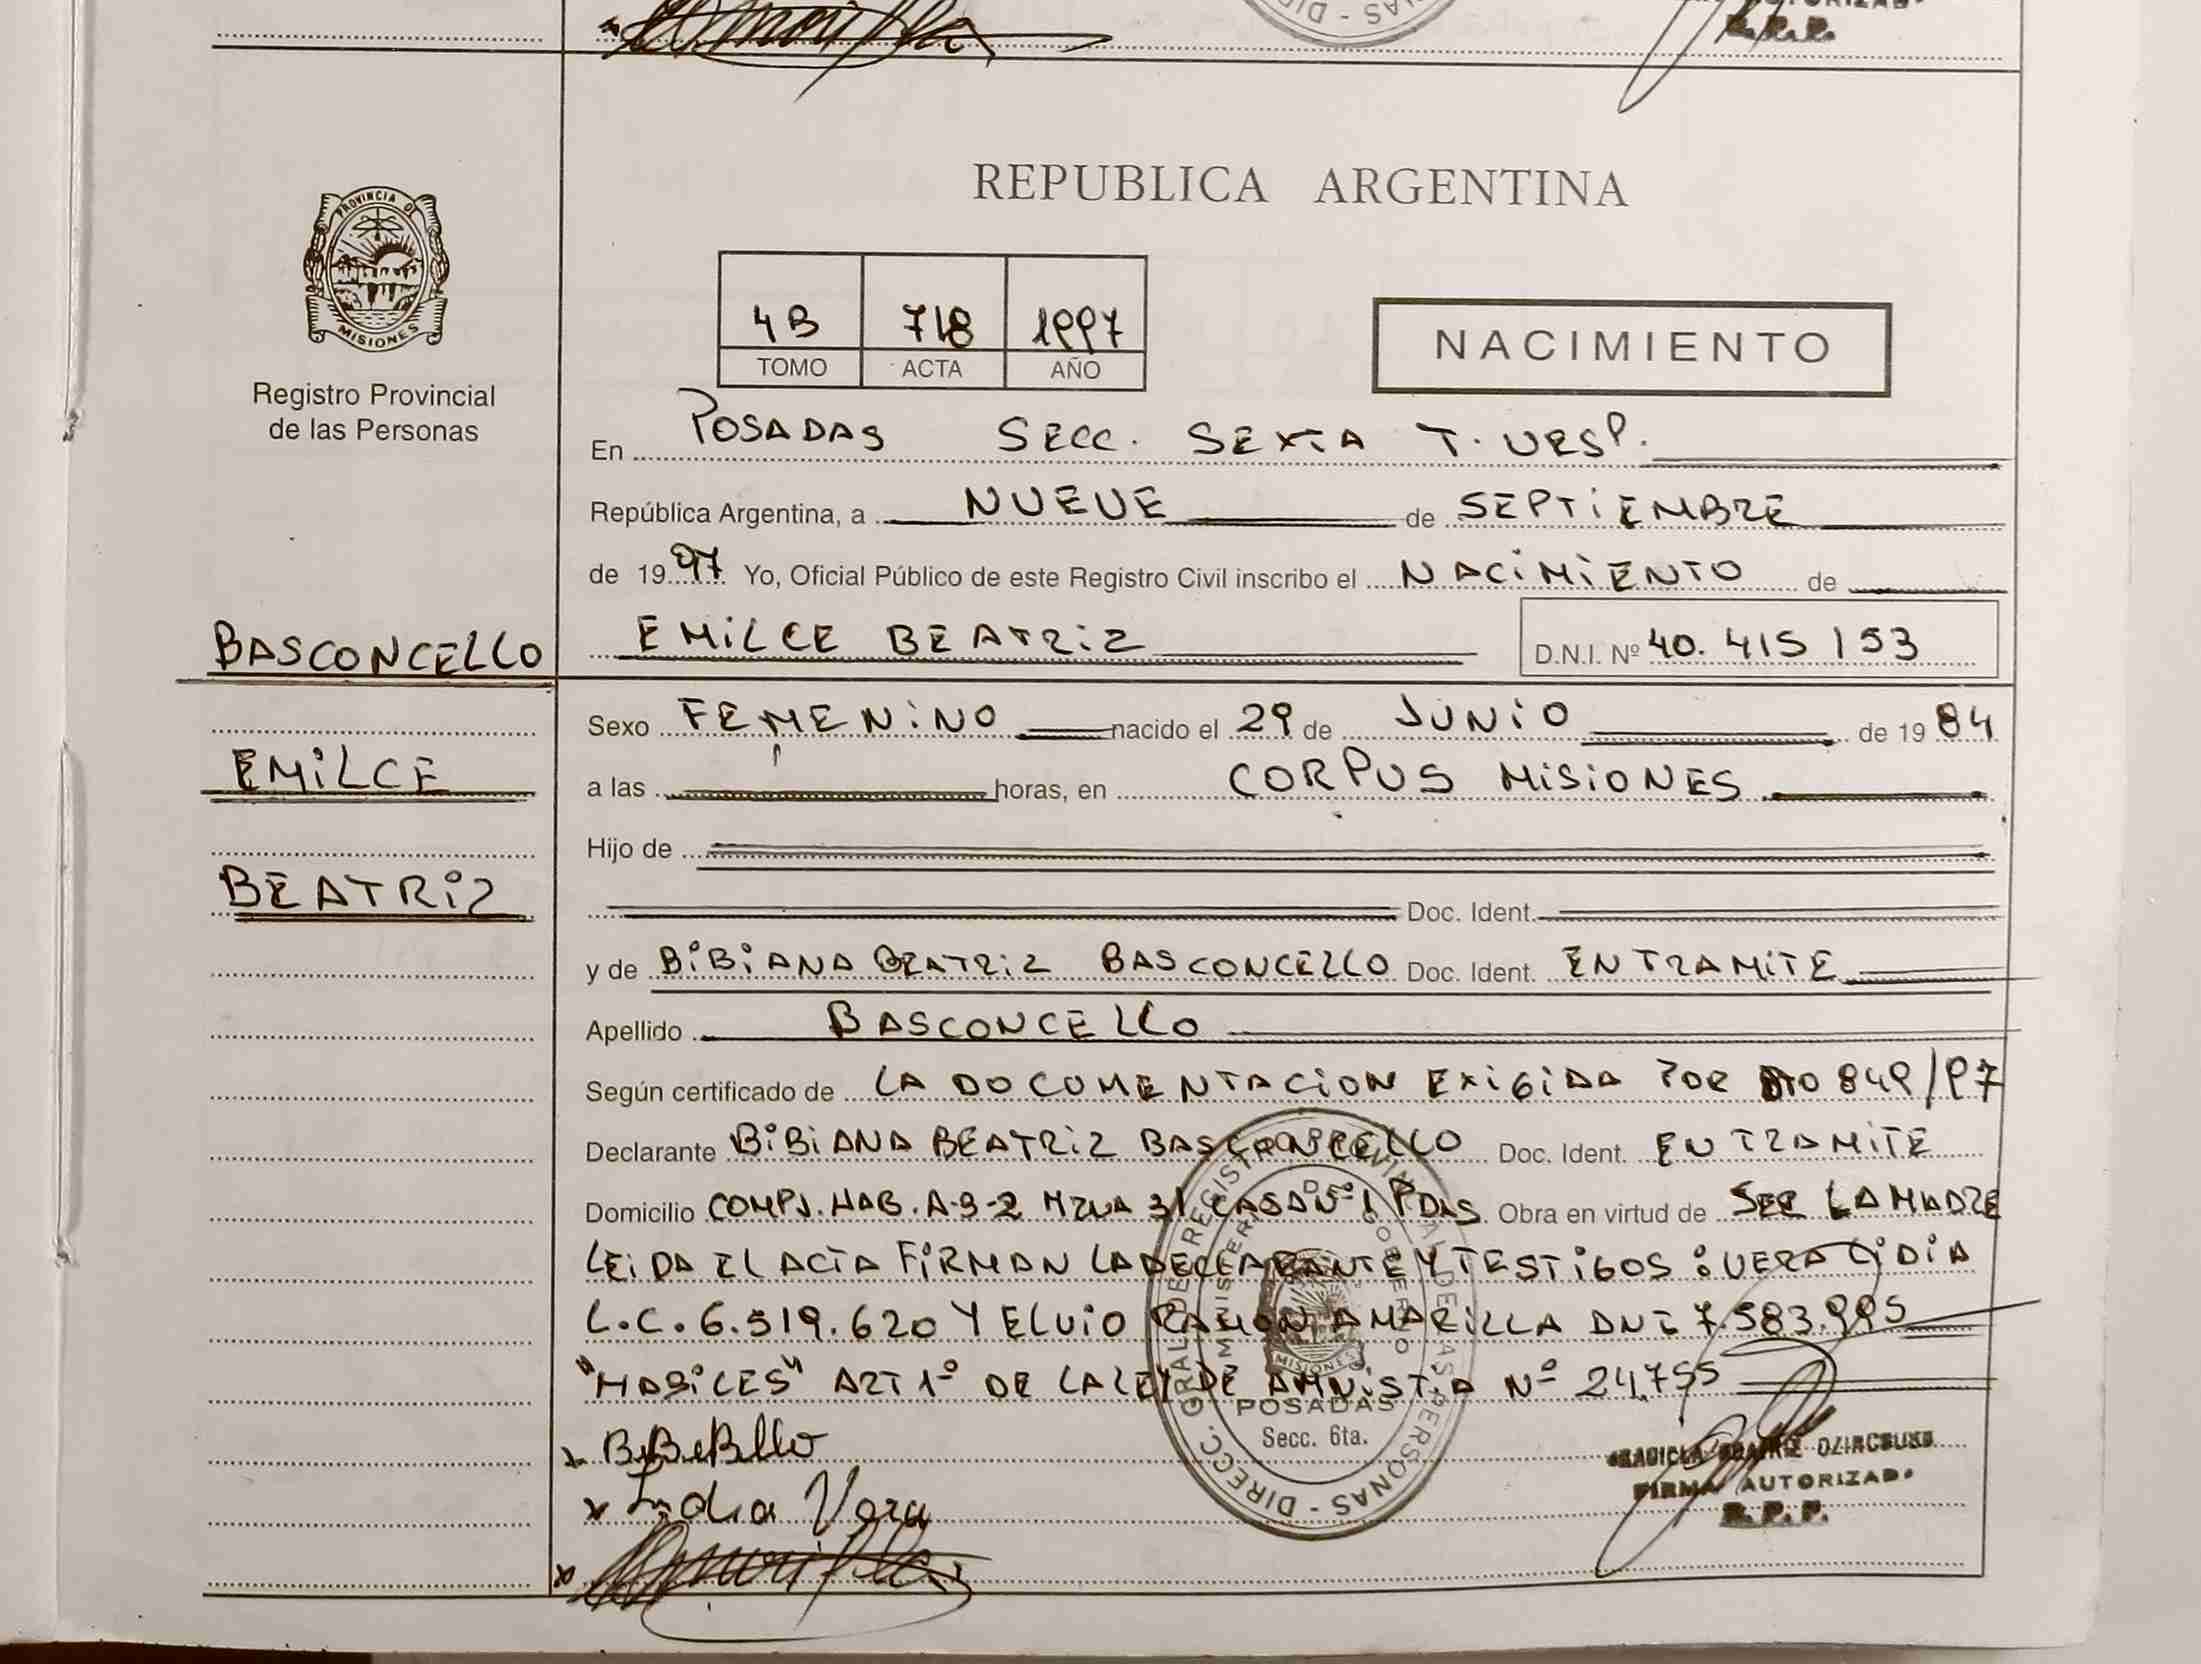 REPUBLICA ARGENTINA
PROVINCIA DE
MISIONES
Registro Provincial
de las Personas
4B 718 1997
TOMO ACTA AÑO
NACIMIENTO
En POSADAS SECC. SEXTA T. VESP.
República Argentina, a NUEVE de SEPTIEMBRE
de 1997 Yo, Oficial Público de este Registro Civil inscribo el NACIMIENTO de
BASCONCELLO
EMILCE BEATRIZ D.N.I. Nº 40.415153
Sexo FEMENINO nacido el 29 de JUNIO de 1984
EMILCE
a las horas, en CORPUS MISIONES
Hijo de
BEATRIZ
Doc. Ident.
y de BIBIANA BEATRIZ BASCONCELLO Doc. Ident. EN TRAMITE
Apellido BASCONCELLO
Según certificado de LA DOCUMENTACION EXIGIDA POR DTO 849/97
Declarante BIBIANA BEATRIZ BASCONCELLO Doc. Ident. EN TRAMITE
Domicilio COMPJ. HAB. A-3-2 MZNA 31 CASA Nº 1 PDAS. Obra en virtud de SER LA MADRE
LEIDA EL ACTA FIRMAN LA DECLARANTE Y TESTIGOS: VERA LIDIA
L.C. 6.519.620 Y ELVIO RAMON AMARILLA DNI 7.583.995
ART 1º DE LA LEY DE AMNISTIA Nº 24.755
DIRECC. GRAL DE REGISTRO PROVINCIAL DE LAS PERSONAS
MINISTERIO DE GOBIERNO
MISIONES
POSADAS
Secc. 6ta.
Lidia Vera
FIRMA AUTORIZADA
R.P.P.